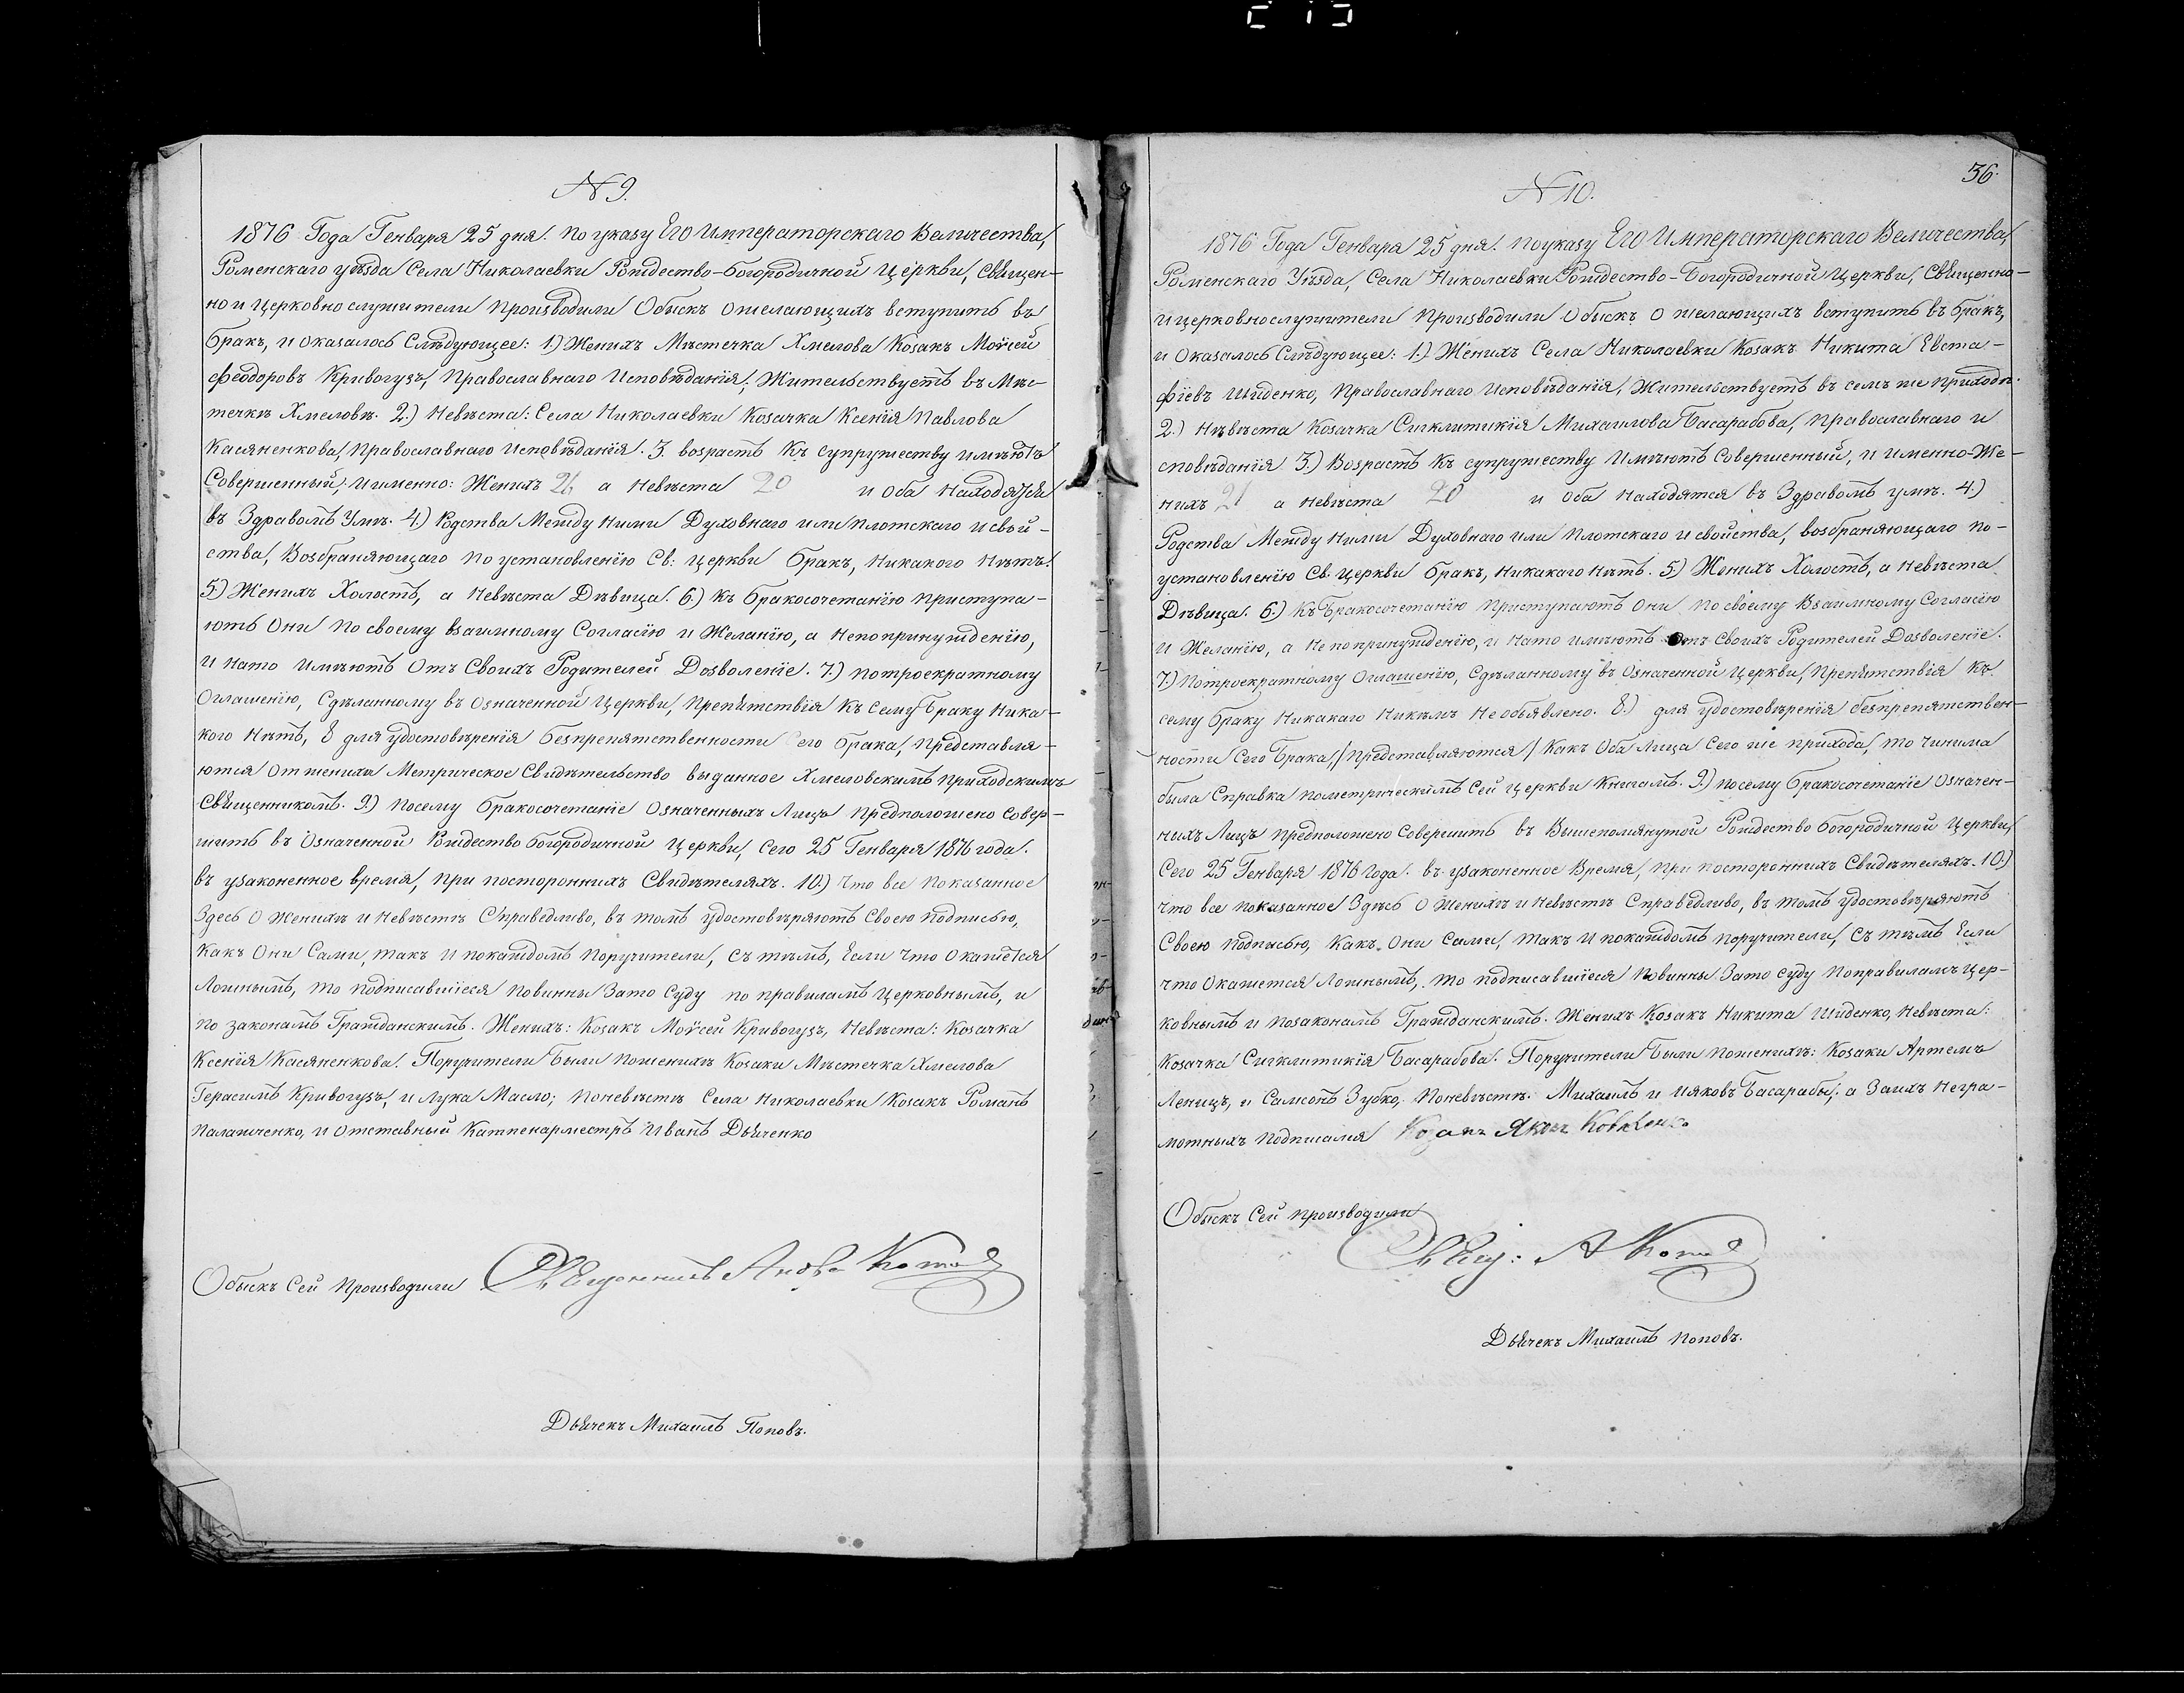 N 9.
1876 Года Генваря 25 дня. по указу Его Императорскаго Величества,
Роменскаго уѣзда Села Николаевки Рождество-Богородичной Церкви, Священ-
но и церковно служители производили Обыскъ о желающихъ вступить въ
бракъ, и оказалось Слѣдующее: 1.) Женихъ Мѣстечка Хмелова Козакъ Моѵсей
Феодоровъ Кривогузъ, Православнаго Исповѣданія; Жительствуетъ въ Мѣс-
течкѣ Хмеловѣ. 2.) Невѣста: Села Николаевки Козачка Ксенія Павлова
Касяненкова, Православнаго исповѣданія. 3. возрастъ къ супружеству имѣютъ
Совершенный, и именно: Женихъ 26 а Невѣста 20 и оба Находятся
въ Здравомъ Умѣ. 4.) Родства Между ними Духовнаго или плотскаго и свой-
ства, Возбраняющаго по установленію Св: церкви бракъ, никакого Нѣтъ.
5.) Женихъ Холостъ, а Невѣста Дѣвица. 6.) Къ бракосочетанію приступа-
ютъ Они по своему взаимному Согласію и Желанію, а непопринужденію,
и нато имѣютъ Отъ Своихъ Родителей Дозволеніе. 7.) потроекратному
Оглашенію, Сдѣланному въ Означенной Церкви, Препятствія къ сему Браку Ника-
кого Нѣтъ, 8 для удостовѣренія безпрепятственности Сего брака, представля-
ются от жениха Метрическое Свидѣтельство выданное Хмеловскимъ приходскимъ
Священникомъ. 9.) посему бракосочетаніе Означенныхъ Лицъ предположено Совер-
шить въ Означенной Рождество Богородичной Церкви, Сего 25 Генваря 1876 года.
въ узаконенное время, при постороннихъ Свидѣтеляхъ. 10.) Что все показанное
Здесь о женихѣ и невѣстѣ Справедливо, въ томъ удостовѣряютъ Своею подписью,
какъ Они Сами, такъ и покаждомъ поручители, съ тѣмъ, Если что окажется
Ложнымъ, то подписавшіеся повинны Зато Суду по правиламъ Церковнымъ, и
по законамъ Гражданскимъ. Женихъ: Козакъ Моѵсей Кривогузъ, Невѣста: Козачка
Ксенія Касяненкова. Поручители были по женихѣ Козаки Мѣстечка Хмелова
Герасимъ Кривогузъ, и Лука Масло; поневѣстѣ Села Николаевки Козакъ Романъ
Палажченко, и отставный Каптенарместръ Иванъ Дьяченко
Обыскъ Сей производили Священникъ
Дьячекъ Михаилъ Поповъ.
36.
N 10.
1876 Года Генваря 25 дня. поуказу Его Императорскаго Величества,
Роменскаго Уѣзда, Села Николаевки Рождество-Богородичной Церкви, Священно-
и церковнослужители производили Обыскъ о желающихъ вступить въ бракъ,
и оказалось Слѣдующее: 1.) Женихъ Села Николаевки Козакъ Никита Евста-
фіевъ Ищенко, Православнаго Исповѣданія, Жительствуетъ въ семъ же приходѣ.
2.) Невѣста Козачка Сигклитикія Михаилова Басарабова, православнаго и
сповѣданія 3.) Возрастъ къ супружеству Имѣютъ Совершенный, и именно-Же-
нихъ 21 а Невѣста 20 и оба находятся въ Здравомъ умѣ. 4.)
Родства Между Ними Духовнаго или плотскаго и свойства, возбраняющаго по-
установленію Св. церкви бракъ, никакаго нѣтъ. 5.) Женихъ Холостъ, а невѣста
Дѣвица. 6.) Къ Бракосочетанію приступаютъ Они по своему Взаимному Согласію
и Желанію, а непопринужденію, и нато имѣютъ Отъ своихъ Родителей Дозволеніе.
7.) Потроекратному Оглашенію, Сдѣланному въ Означенной Церкви, Препятствія къ
сему браку Никакаго Никѣмъ Необъявлено. 8.) для удостовѣренія безпрепятствен-
ности Сего Брака, /представляются/ Какъ Оба Лица Сего же прихода, то Чинима
была Справка пометрическимъ Сей Церкви Книгамъ. 9.) посему бракосочетаніе Означен-
ныхъ Лицъ предположено Совершить въ Вышепомянутой Рождество Богородичной Церкви,
Сего 25 Генваря 1876 Года. въ узаконенное Время, при постороннихъ Свидѣтеляхъ. 10.)
Что все показанное Здѣсь о женихѣ и невѣстѣ Справедливо, въ томъ удостовѣряютъ
Своею подписью, какъ Они Сами, такъ и покаждомъ поручители, съ тѣмъ Если
что окажется Ложнымъ, то подписавшіеся повинны Зато суду поправиламъ Цер-
ковнымъ и позаконамъ Гражданскимъ. Женихъ Козакъ Никита Ищенко, Невѣста:
Козачка Сигклитикія Басарабова. Поручители Были поженихѣ: Козаки Артемъ
Леницъ, и Самсонъ Зубко, Поневѣстѣ: Михаилъ и Ияковъ Басарабы; а За нихъ Негра-
мотныхъ подписался Козакъ Яковъ
Обыскъ Сей производили
Свящ: А
Дьячекъ Михаилъ Поповъ.